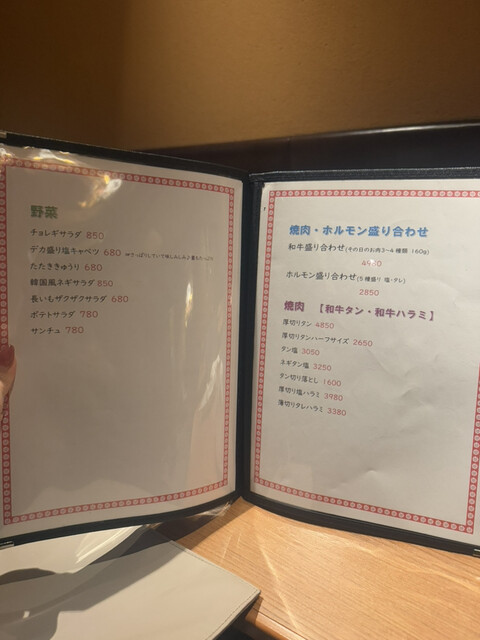 野菜
チョレギサラダ 850
デカ盛り塩キャベツ 680
たたききゅうり 680
韓国風ネギサラダ 850
長いもザクザクサラダ 680
ポテトサラダ 780
サンチュ 780
焼肉・ホルモン盛り合わせ
和牛盛り合わせ(その日のお肉3~4種類 160g)
ホルモン盛り合わせ(5種盛り 塩・タレ)
2850
焼肉 【和牛タン・和牛ハラミ】
厚切りタン 4850
厚切りタンハーフサイズ 2650
タン塩 3050
ネギタン塩 3250
タン切り落とし 1600
厚切り塩ハラミ 3980
薄切りタレハラミ 3380